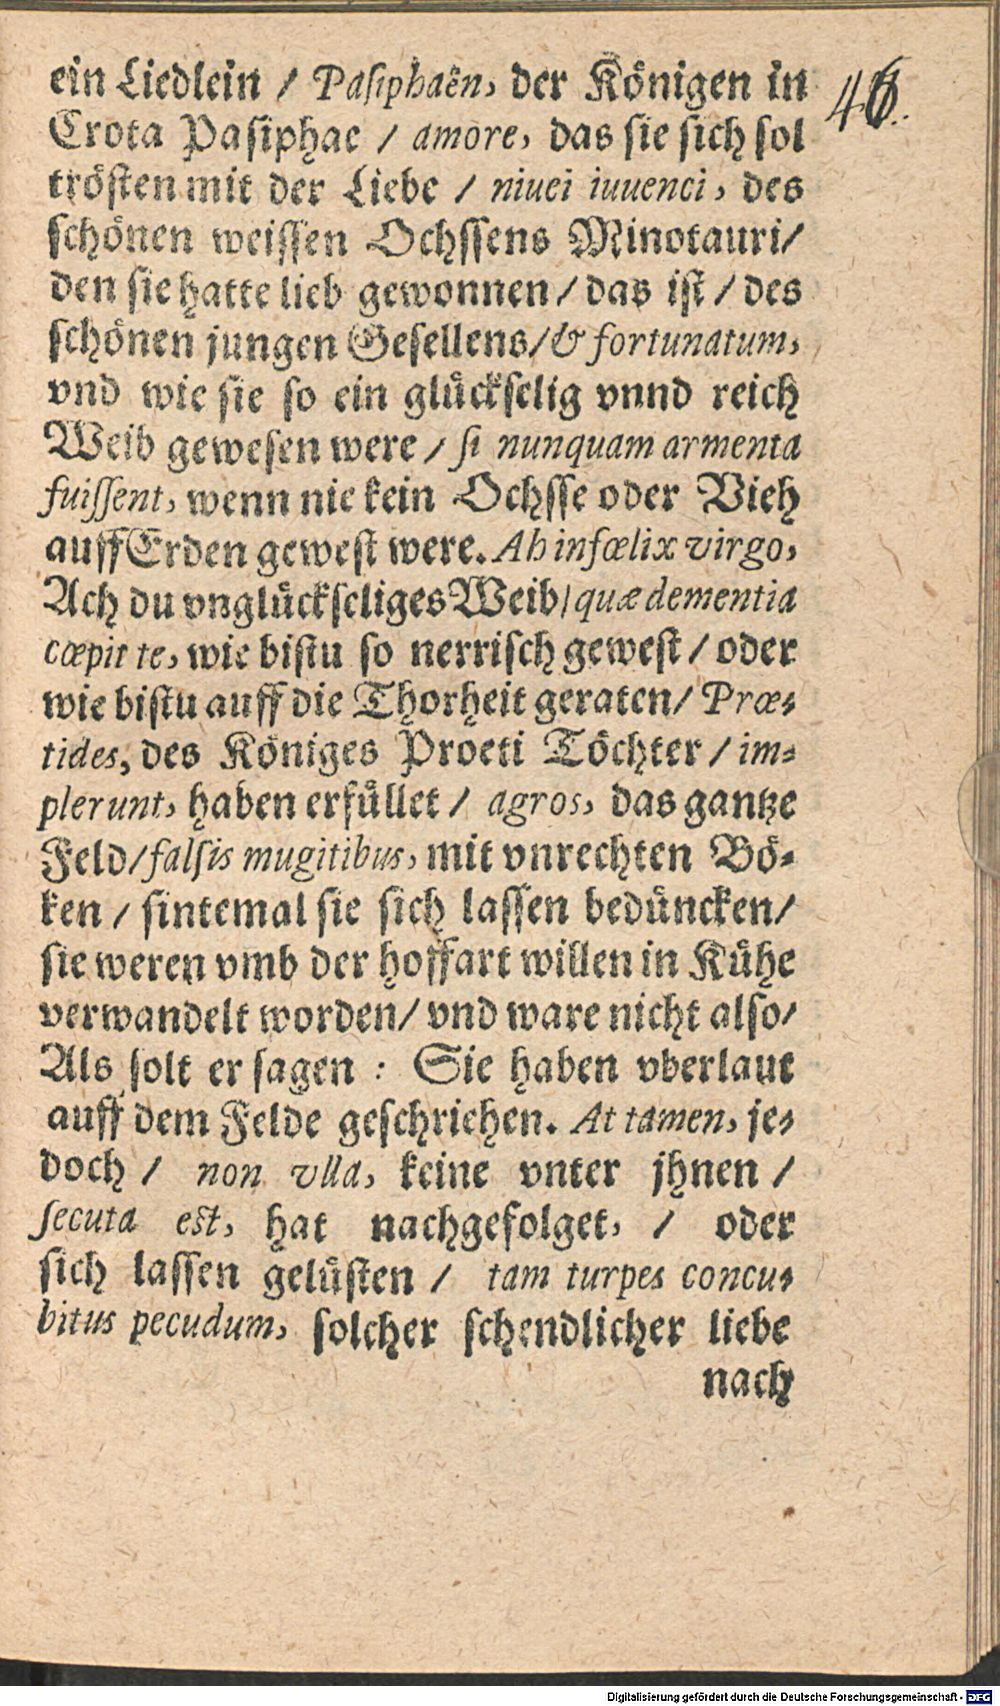 ein Liedlein / Pasiphaën, der Königen in
Crota Pasiphae / amore, das sie sich sol
trösten mit der Liebe / niuei iuuenci, des
schönen weissen Ochssens Minotauri/
den sie hatte lieb gewonnen / das ist / des
schönen jungen Gesellens/& fortunatum,
vnd wie sie so ein glückselig vnnd reich
Weib gewesen were / si nunquam armenta
fuissent, wenn nie kein Ochsse oder Vieh
auff Erden gewest were. Ah infœlix virgo,
Ach du vnglückseliges Weib/quæ dementia
cœpit te, wie bistu so nerrisch gewest / oder
wie bistu auff die Thorheit geraten/ Prœ-
tides, des Königes Proeti Töchter / im-
plerunt, haben erfüllet / agros, das gantze
Feld/falsis mugitibus, mit vnrechten Bö-
ken / sintemal sie sich lassen bedüncken/
sie weren vmb der hoffart willen in Kühe
verwandelt worden/ vnd ware nicht also/
Als solt er sagen : Sie haben vberlaut
auff dem Felde geschriehen. At tamen, je-
doch / non vlla, keine vnter jhnen /
secuta est, hat nachgefolget, / oder
sich lassen gelüsten / tam turpes concu-
bitus pecudum, solcher schendlicher liebe
nach
Digitalisierung gefördert durch die Deutsche Forschungsgemeinschaft - DFG